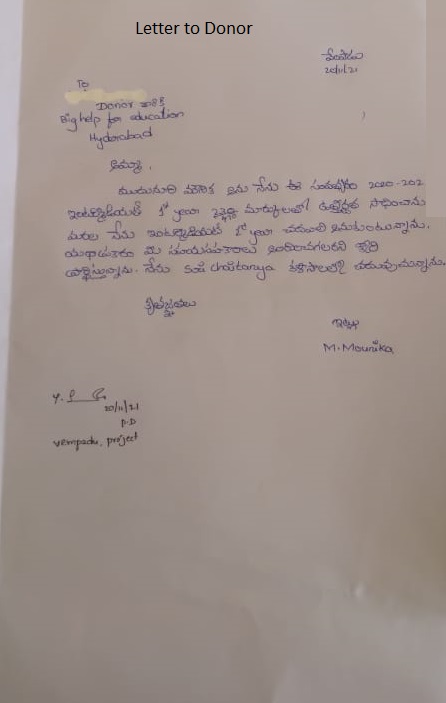 Letter to Donor
వేంపాడు
20/11/21
To
Donor గారికి
Big help for education
Hyderabad
అమ్మా,
మౌనిక అను నేను ఈ సంవత్సరం 2020-202
ఇంటర్మీడియట్ 1st year మార్కులతో ఉత్తీర్ణత సాధించాను
మరల నేను ఇంటర్మీడియట్ year చదవాలి అనుకుంటున్నాను.
యథాప్రకారం మీ సహాయసహకారాలు అందించగలరని కోరి
ప్రార్థిస్తున్నాను. నేను Sri chaitanya కళాశాలలో చదువుచున్నాను.
కృతజ్ఞతలు
ఇట్లు
M. Mounika
20/11/21
P.D
vempadu, project